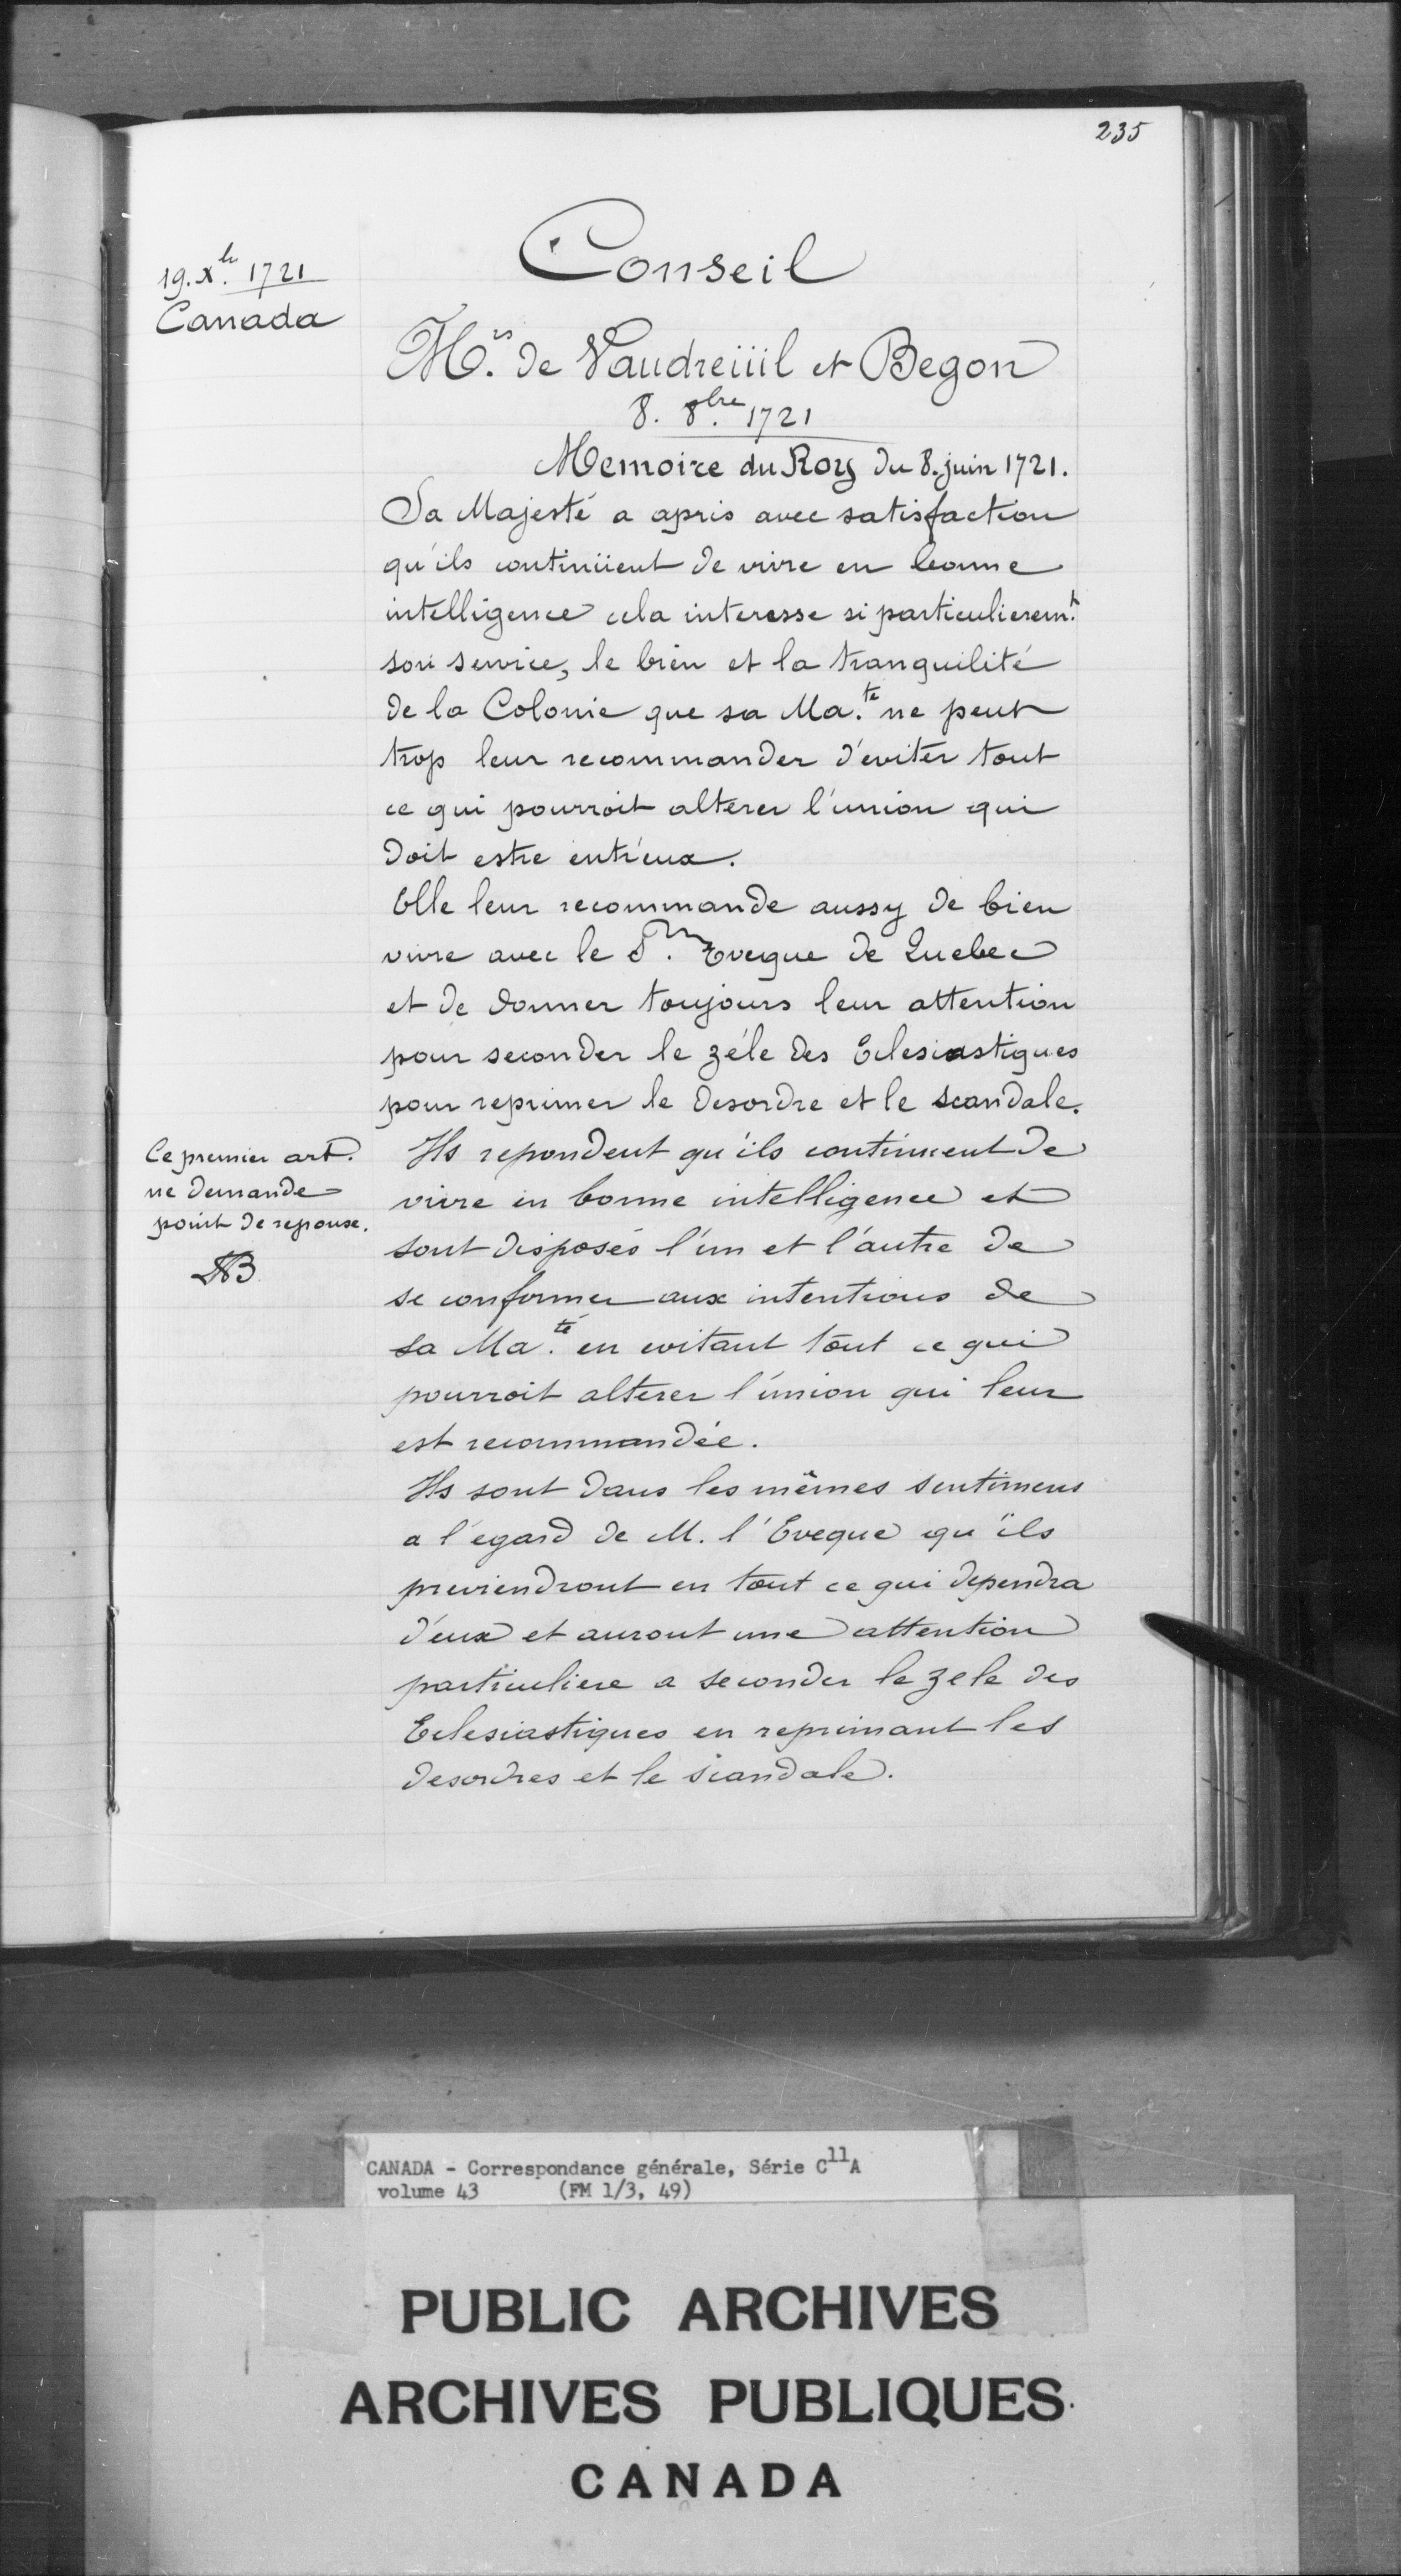 235
19. X.br 1721
Canada
Conseil
Mrs. de Vaudreüil et Begon
8. 8bre. 1721
Memoire du Roy du 8. juin 1721.
Sa Majesté a apris avec satisfaction
qu'ils continüent de vivre en bonne
intelligence cela interesse si particulierem.t
son service, le bien et la tranquilité
de la Colonie que sa Ma.té ne peut
trop leur recommander d'eviter tout
ce qui pourroit alterer l'union qui
doit estre entr'eux.
Elle leur recommande aussy de bien
vivre avec le S.r Eveque de Quebec
et de donner toujours leur attention
pour seconder le zéle des Eclesiastiques
pour reprimer le desordre et le scandale.
Ce premier art.
ne demande
point de reponse.
Ils repondent qu'ils continuent de
vivre en bonne intelligence et
sont disposés l'un et l'autre de
se conformer aux intentions de
sa Ma.té en evitant tout ce qui
pourroit alterer l'union qui leur
est recommandée.
Ils sont dans les mêmes sentimens
a l'egard de M. l'Eveque qu'ils
previendront en tout ce qui dependra
d'eux et auront une attention
particuliere a seconder le zele des
Eclesiastiques en reprimant les
desordres et le scandale.
CANADA - Correspondance générale, Série C11A
volume 43 (FM 1/3, 49)
PUBLIC ARCHIVES
ARCHIVES PUBLIQUES
CANADA